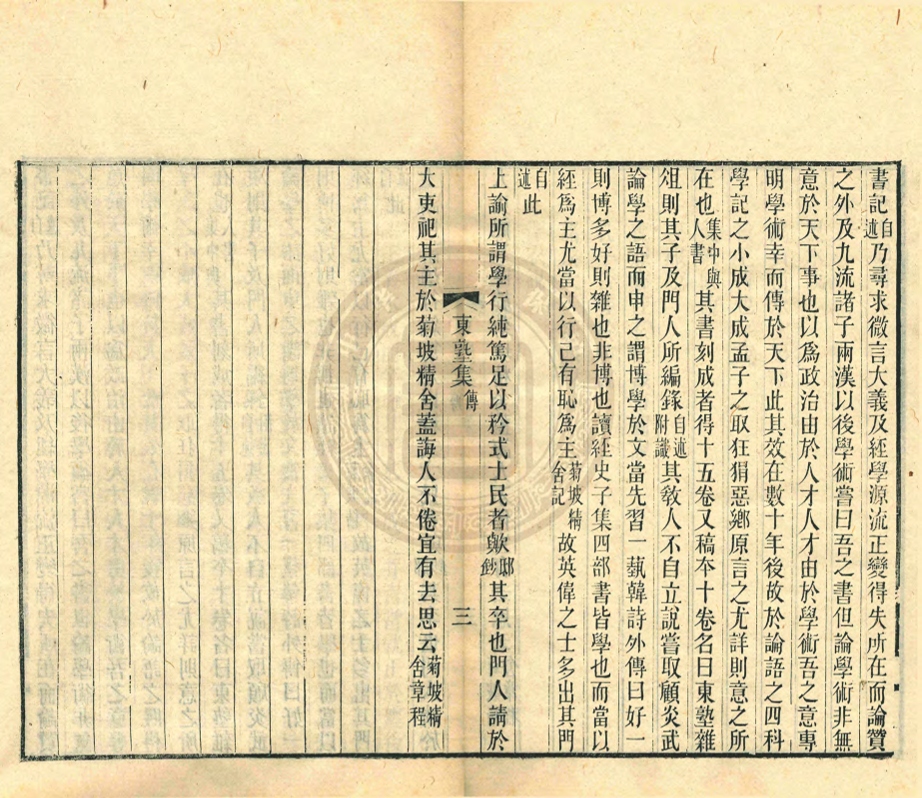 書記自述乃尋求微言大義及經學源流正變得失所在而論贊
之外及九流諸子兩漢以後學術嘗曰吾之書但論學術非無
意於天下事也以爲政治由於人才人才由於學術吾之意專
明學術幸而傳於天下此其效在數十年後故於論語之四科
學記之小成大成孟子之取狂狷惡鄉原言之尤詳則意之所
在也集中與人書其書刻成者得十五卷又稿本十卷名曰東塾雜
俎則其子及門人所編錄自述附識其敎人不自立說嘗取顧炎武
論學之語而申之謂博學於文當先習一藝韓詩外傳曰好一
則博多好則雜也非博也讀經史子集四部書皆學也而當以
經爲主尤當以行己有恥爲主菊坡精舍記故英偉之士多出其門
自述此
上諭所謂學行純篤足以矜式士民者歟邸鈔其卒也門人請於
東塾集 傳 三
大吏祀其主於菊坡精舍蓋誨人不倦宜有去思云菊坡精舍章程